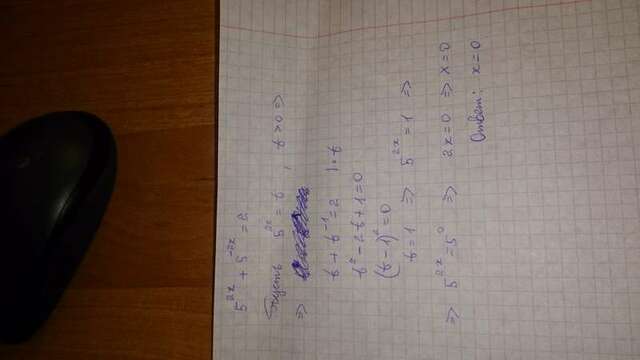 5^{2x} + 5^{-2x} = 2
Пусть 5^{2x} = t, t > 0 ⇒
⇒
t + t^{-1} = 2 | · t
t² - 2t + 1 = 0
(t - 1)² = 0
t = 1 ⇒ 5^{2x} = 1 ⇒
⇒ 5^{2x} = 5^0 ⇒ 2x = 0 ⇒ x = 0
Ответ: x = 0